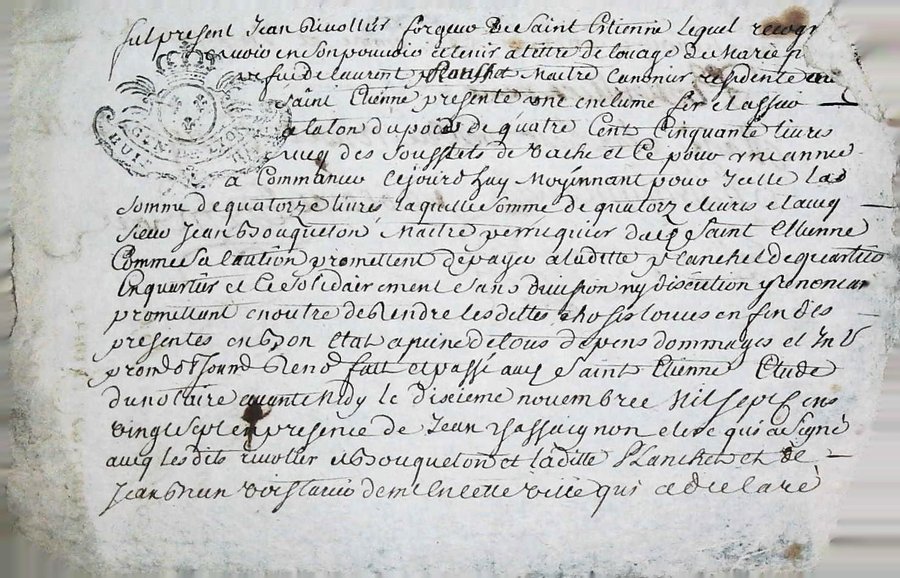 fut present Jean Rivollier forgeur De Saint Etienne Lequel recogn
avoir en son pouvoir et tenir a tittre de louage De Marie
vefve de laurent Maitre Canonier residente au
Saint Etienne presente une enclume fer et assier
a la ton du poid de quatre Cent Cinquante livres
avecq des soufflets de vache et Ce pour une année
a Commancer Cejourdhuy Moÿennant pour Icelle la
somme de quatorze livres laquelle somme de quatorze livres et avecq
sieur Jean Bouqueton Maitre perruquier dud Saint Etienne
Comme sa Caution promettent de payer a laditte planchet de quartier
En quartier et Ce solidairement e sans division ny discution y renoncan
promettant en outre de Rendre les dittes choses louées en fin des
presentes en Bon état a peine de tous depens dommages et In
prom obl soum Renon fait et passé aud Saint Etienne Etude
du notaire avant midy le dixieme novembre Mil sept cens
vingt sept en presence de Jean clerc qui a signé
avecq les dits rivolier et Bouqueton et la ditte Planchet et de
Jean Brun dem en cette ville qui a declaré
LION